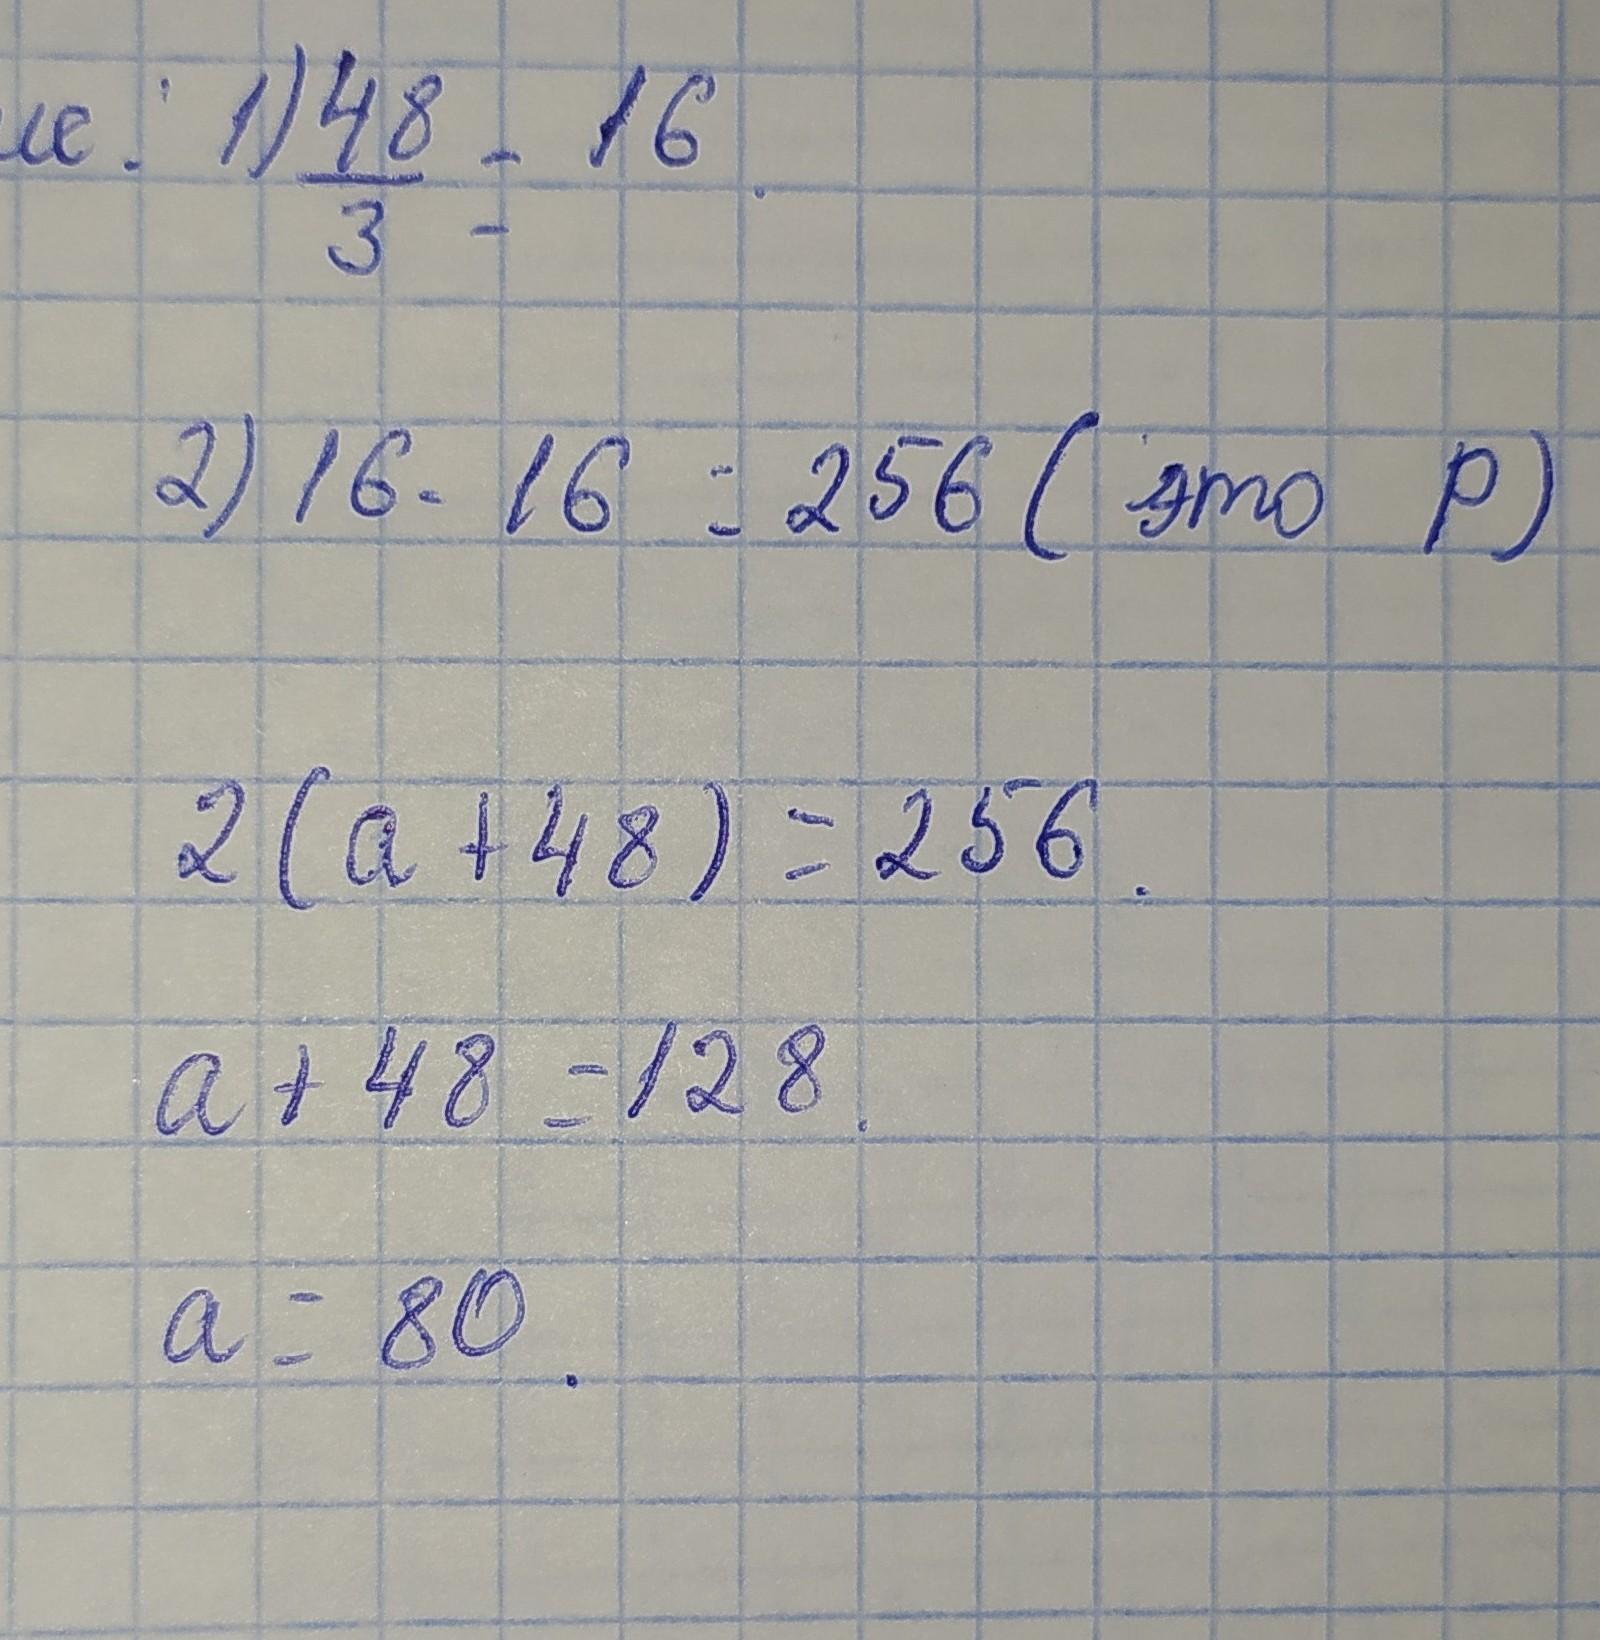 1) 48/3 = 16.
2) 16 · 16 = 256 (это P)
2(a + 48) = 256.
a + 48 = 128.
a = 80.